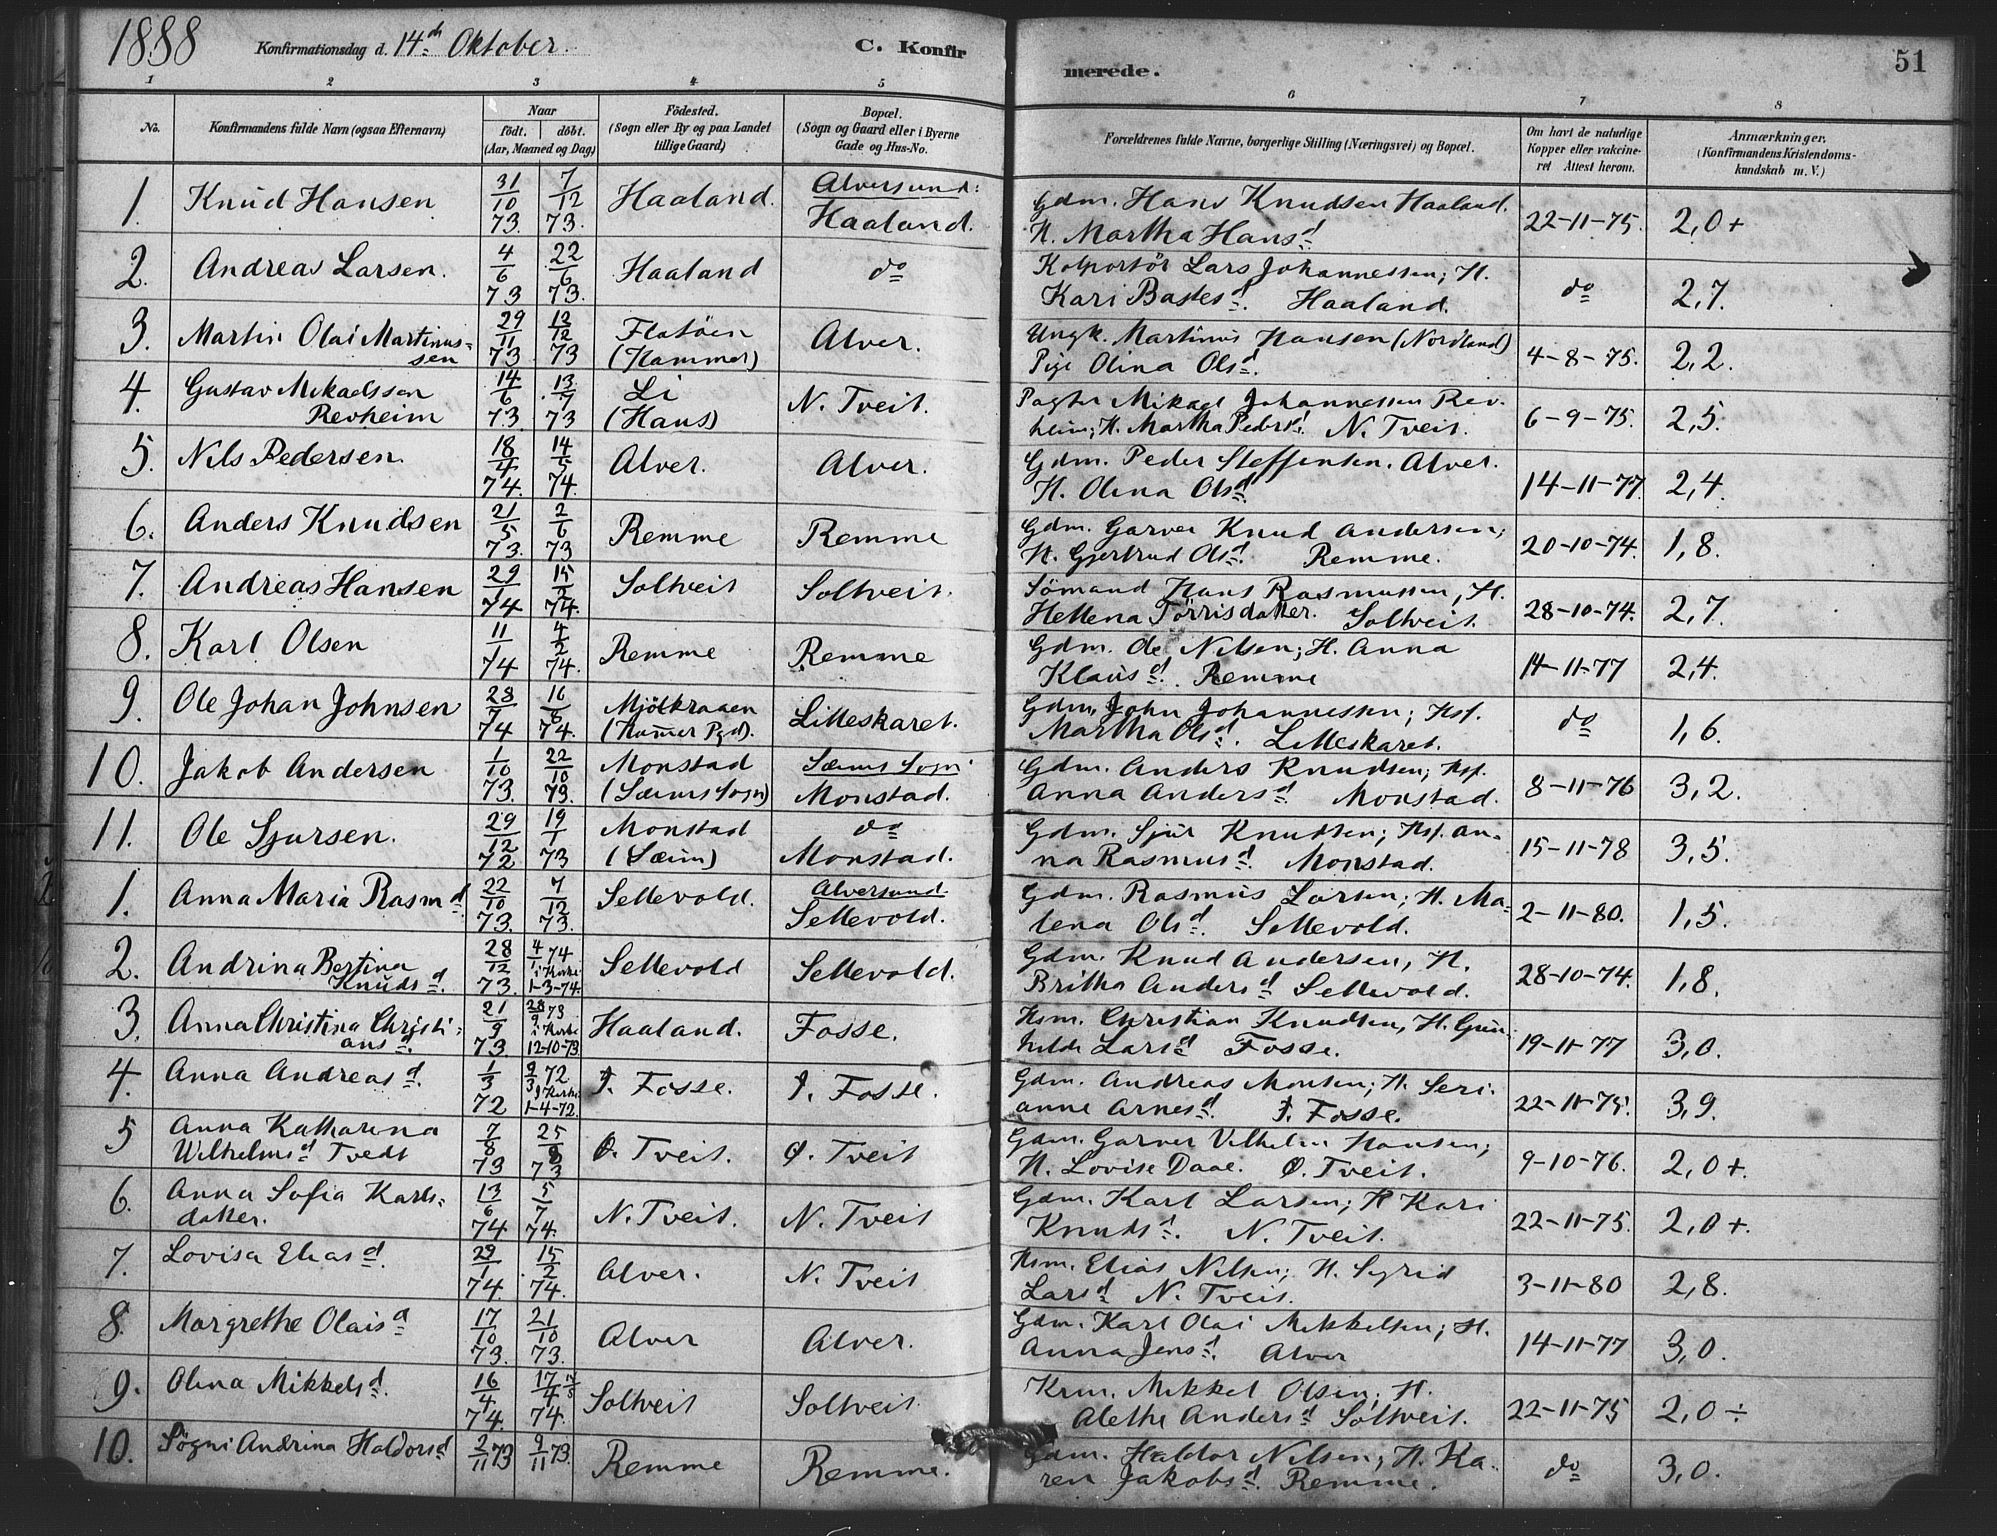 1888 Konfirmationsdag d. 14de Oktober. C. Konfirmerede. 51
1 2 3 4 5 6 7 8
No. Konfirmandens fulde Navn (ogsaa Efternavn) Naar født. døbt. (Aar, Maaned og Dag) Födested. (Sogn eller By og paa Landet tillige Gaard) Bopæl. (Sogn og Gaard eller i Byerne Gade og Hus-No. Forældrenes fulde Navne, borgerlige Stilling (Næringsvei) og Bopæl. Om havt de naturlige Kopper eller vakcineret Attest herom. Anmærkninger. (Konfirmandens Kristendomskundskab m.V.)
1. Knud Hansen 31/10 73. 7/12 73. Haaland. Alversund: Haaland. Gdm. Hans Knudsen Haaland. H. Martha Hansd. 22-11-75. 2,0+
2. Andreas Larsen. 4/6 73 22/6 73. Haaland do Kolportör Lars Johannessen; H. Kari Bastesd. Haaland. do 2,7.
3. Martin Olai Martinussen 29/11 73 12/12 73 Flatöen (Hammer) Alver. Ungk. Martinus Hansen (Nordland) Pige Olina Olsd. 4-8-75. 2,2.
4. Gustav Mikaelssen Revheim 14/6 73. 13/7 73 Li (Haus) N. Tveit. Pagter Mikael Johannessen Revheim; H. Martha Pedersd. N. Tveit. 6-9-75. 2,5.
5. Nils Pedersen. 18/4 74. 14/5 74. Alver. Alver. Gdm. Peder Steffensen. Alver. H. Olina Olsd. 14-11-77. 2,4.
6. Anders Knudsen 21/5 73. 2/6 73 Remme Remme Gdm. Garver Knud Andersen; H. Gjertrud Olsd. Remme. 20-10-74. 1,8.
7. Andreas Hansen 29/1 74 15/2 74. Soltveit Soltveit. Sömand Hans Rasmussen, H. Hellena Törrisdatter. Soltveit. 28-10-74. 2,7.
8. Karl Olsen 11/1 74 4/2 74. Remme Remme Gdm. Ole Nilsen; H. Anna Klausd. Remme 14-11-77 2,4.
9. Ole Johan Johnsen 28/7 74 16/8 74. Mjölkraaen (Hammer Pgd). Lilleskaret. Gdm. John Johannessen; Hst. Martha Olsd. Lilleskaret. do 1,6.
10. Jakob Andersen 1/10 73. 22/10 73. Monstad (Sæims Sogn) Sæims Sogn Monstad. Gdm. Anders Knudsen; Hst. Anna Andersd. Monstad. 8-11-76 3,2.
11. Ole Sjursen. 29/12 72 19/1 73 Monstad (Sæim) do Monstad. Gdm. Sjur Knudsen; Hst. Anna Rasmusd. Monstad. 15-11-78 3,5.
1. Anna Maria Rasmd. 22/10 73. 7/12 73. Sellevold. Alversund. Sellevold. Gdm. Rasmus Larsen; H. Malena Olsd. Sellevold. 2-11-80. 1,5.
2. Andrina Bertina Knudsd. 28/12 73. 4/1 74 i Kirke 1-3-74. Sellevold Sellevold. Gdm. Knud Andersen, H. Britha Andersd. Sellevold. 28-10-74. 1,8.
3. Anna Christina Christiansd. 21/9 73. 28/9 73 i Kirke 12-10-73. Haaland. Fosse. Hsm. Christian Knudsen, H. Gunhilde Larsd. Fosse. 19-11-77 3,0.
4. Anna Andreasd. 1/3 72 9/3 72 i Kirke 1-4-72. I. Fosse. I. Fosse. Gdm. Andreas Monsen; H. Serianne Arnesd. I. Fosse. 22-11-75. 3,9.
5 Anna Katharina Wilhelmsd. Tvedt 7/8 73 25/8 73 Ø. Tveit. Ø. Tveit Gdm. Garver Vilhelm Hansen; H. Lovise Daae. Ø. Tveit. 9-10-76. 2,0+.
6. Anna Sofia Karlsdatter. 13/6 74 5/7 74. N. Tveit. N. Tveit Gdm. Karl Larsen; H Kari Knudsd. N. Tveit. 22-11-75. 2,0+.
7. Lovisa Eliasd. 29/1 74. 15/2 74. Alver. N. Tveit Hsm. Elias Nilsen; H. Sygrid Larsd. N. Tveit. 3-11-80 2,8.
8. Margrethe Olaisd. 17/10 73. 21/10 73. Alver Alver. Gdm. Karl Olai Mikkelsen; H. Anna Jensd. Alver 14-11-77 3,0.
9. Olina Mikkelsd. 16/4 74. 17/4 14/5 74. Soltveit Soltveit. Krm. Mikkel Olsen; H. Alethe Andersd. Soltveit. 22-11-75 2,0÷
10. Sögni Andrina Haldorsd 2/11 73 9/11 73. Remme Remme. Gdm. Haldor Nilsen; H. Karen Jakobsd. Remme. do 3,0.